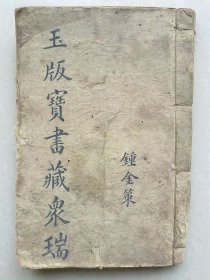 玉版寶書藏衆瑞
鍾金策